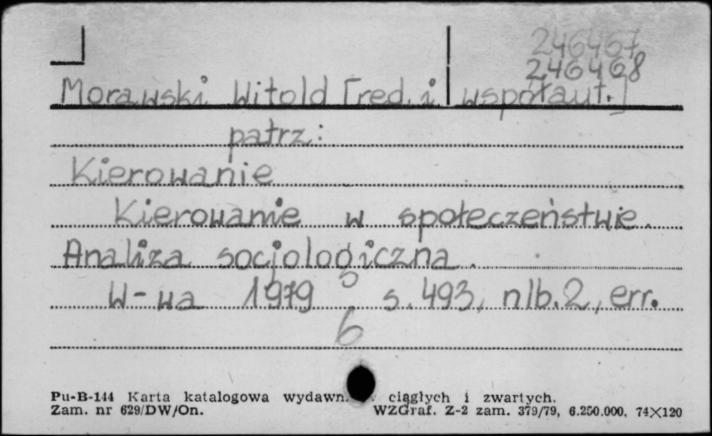 246467
246468
Morawski Witold [red. i współaut.]
patrz:
Kierowanie
Kierowanie w społeczeństwie.
Analiza socjologiczna.
W-wa 1979 s. 493, nlb. 2, err.
6
Pu-B-144 Karta katalogowa wydawn. ciągłych i zwartych.
Zam. nr 629/DW/On. WZGraf. Z-2 zam. 379/79, 6.250.000, 74×120